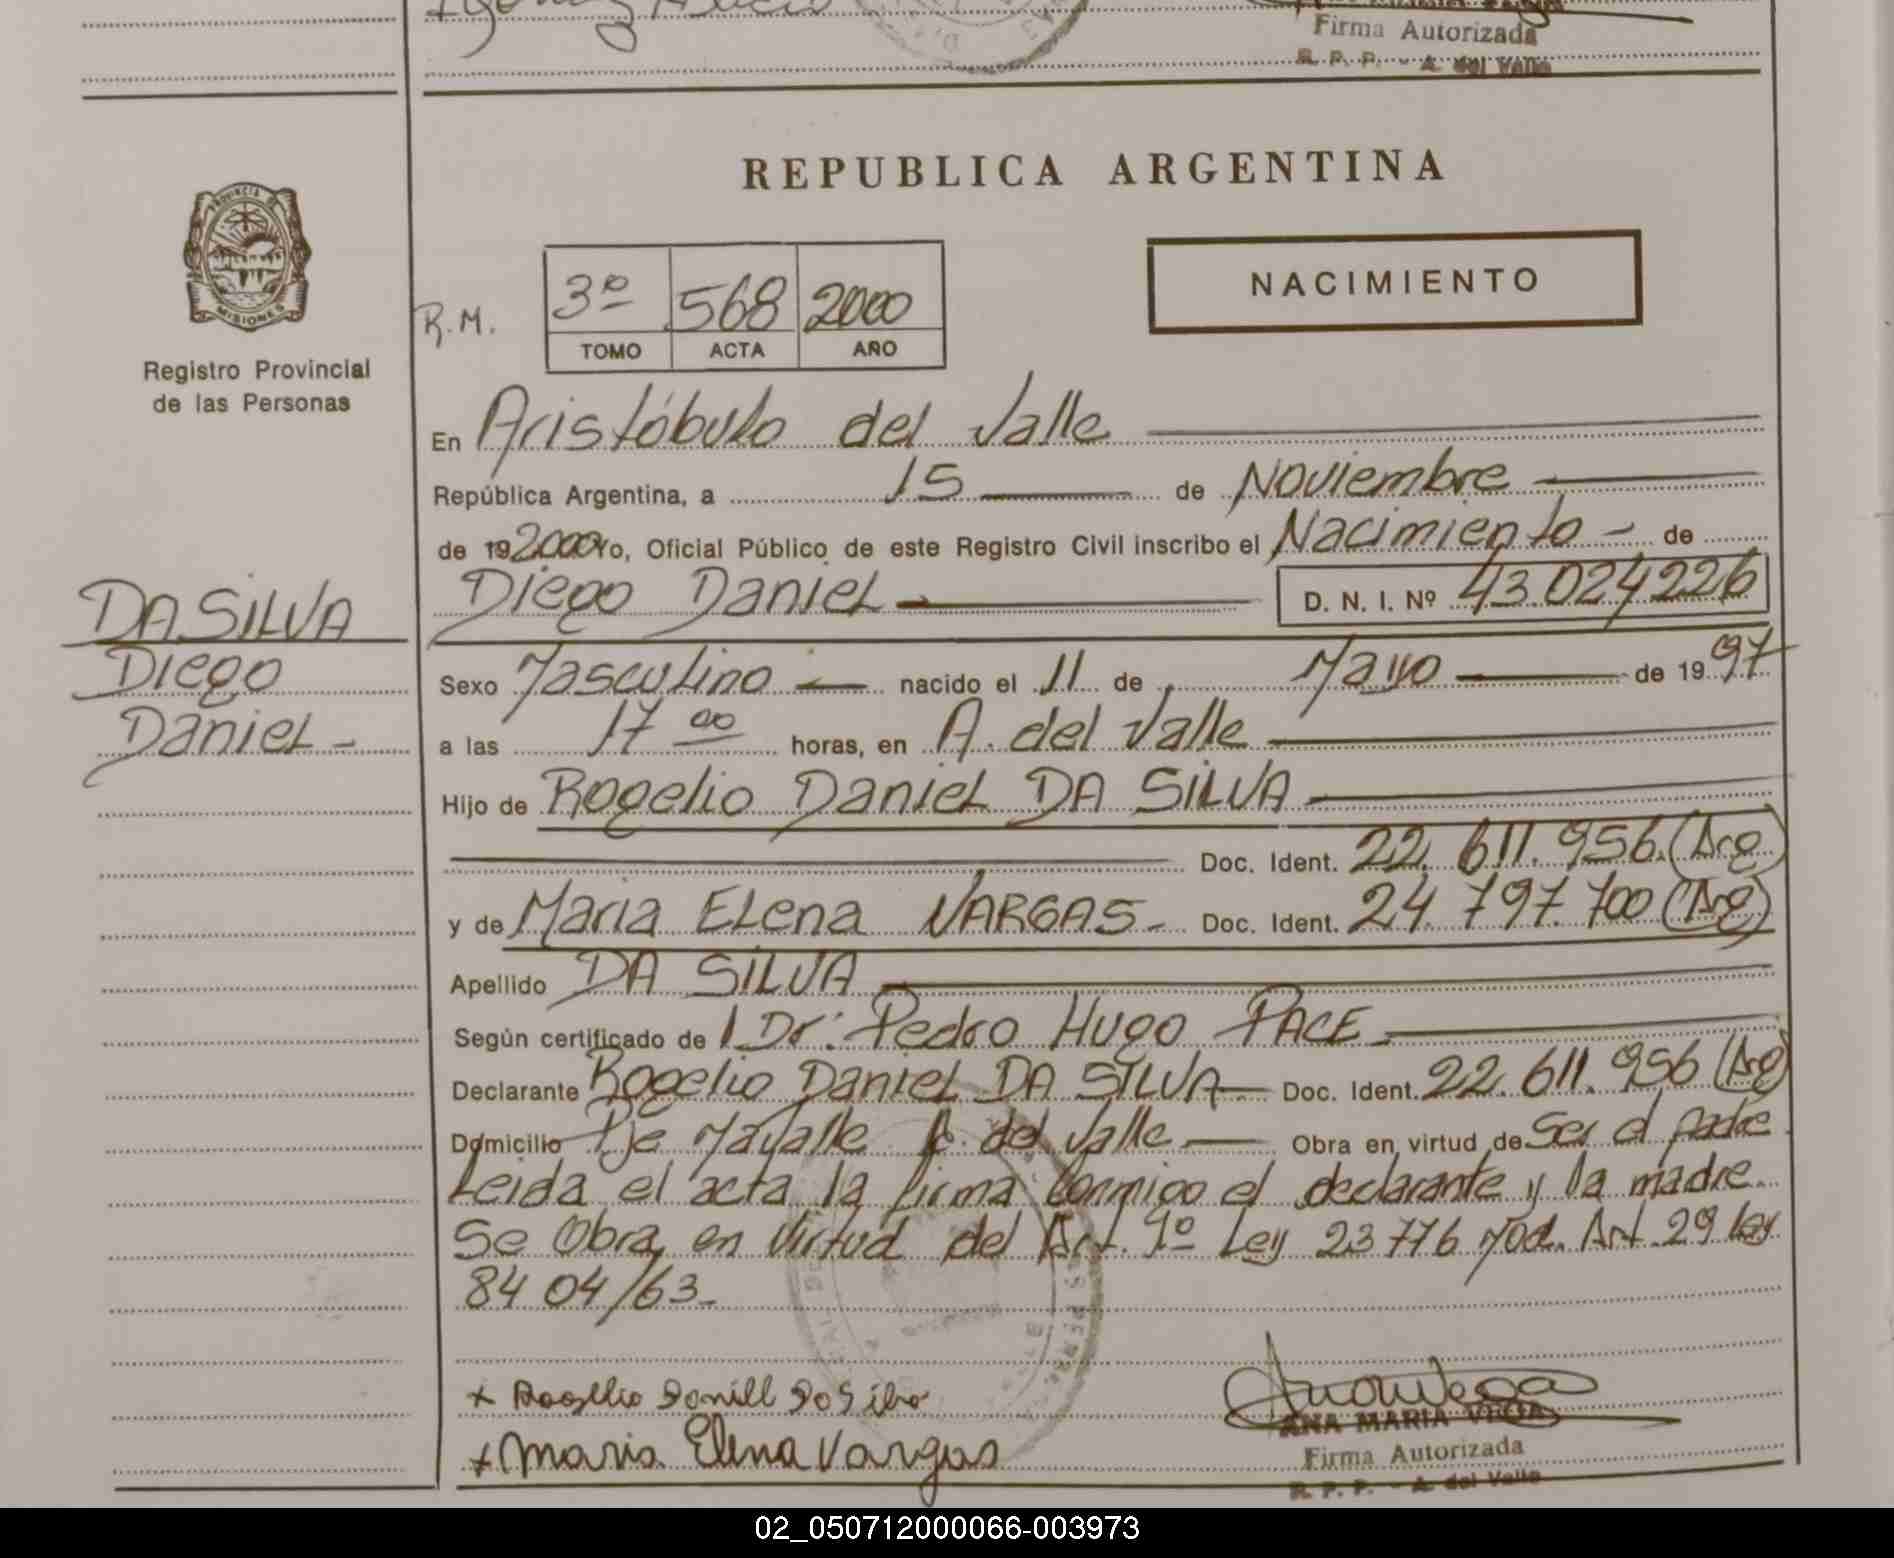 Firma Autorizada
R. P. P. - A. del Valle
REPUBLICA ARGENTINA
PROVINCIA DE
MISIONES
Registro Provincial
de las Personas
R.M.
3º 568 2000
TOMO ACTA AÑO
NACIMIENTO
En Aristóbulo del Valle
República Argentina, a 15 de Noviembre
de 19 2000 Yo, Oficial Público de este Registro Civil inscribo el Nacimiento - de
Diego Daniel D. N. I. Nº 43.024226
DA SILVA
Diego
Daniel -
Sexo Masculino nacido el 11 de Mayo de 1997
a las 17 00 horas, en A. del Valle
Hijo de Rogelio Daniel DA SILVA
Doc. Ident. 22.611.956.(Arg)
y de Maria Elena VARGAS - Doc. Ident. 24.797.700 (Arg)
Apellido DA SILVA
Según certificado de Dr: Pedro Hugo PACE
Declarante Rogelio Daniel DA SILVA Doc. Ident. 22.611.956 (Arg)
Domicilio Pje A. del Valle Obra en virtud de Ser el padre
Leida el acta la firma conmigo el declarante y la madre.
Se Obra en Virtud del Art. 9º Ley 23776 Mod. Art. 29 Ley
8404/63-
+ Rogelio
+ Maria Elena Vargas
ANA MARIA VEGA
Firma Autorizada
R. P. P. - A. del Valle
02_050712000066-003973